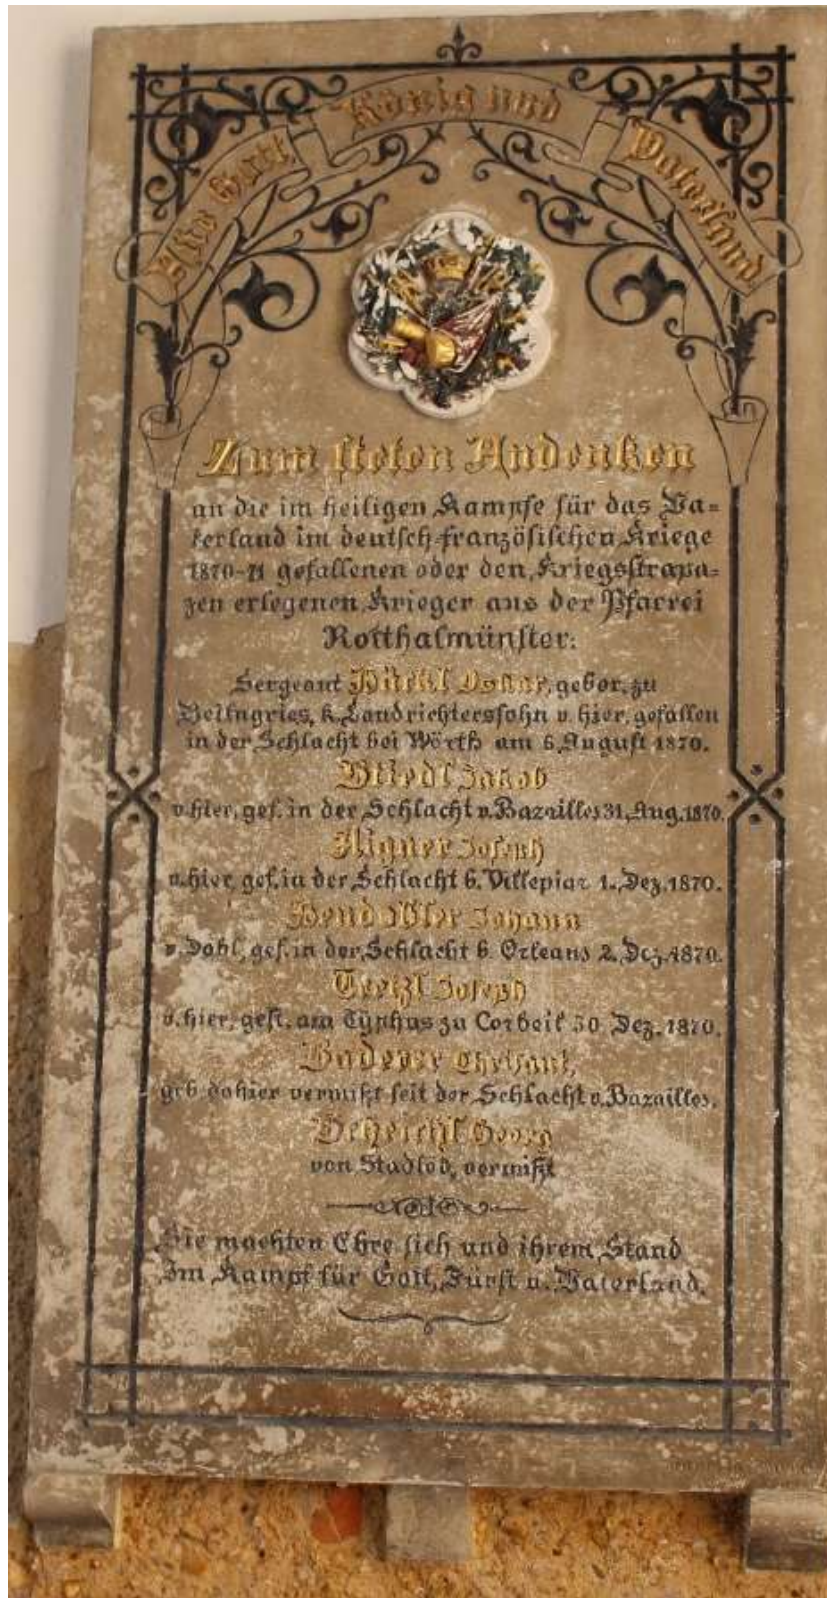 Für Gott, König und Vaterland
Zum steten Andenken
an die im heiligen Kampfe für das Va=
terland im deutsch=französischen Kriege
1870-71 gefallenen oder den Kriegsstrapa=
zen erlegenen Krieger aus der Pfarrei
Rotthalmünster:
Sergeant Oskar, gebor. zu
Beilngries, k. Landrichterssohn v. hier, gefallen
in der Schlacht bei Wörth am 6. August 1870.
Jakob
v. hier, gef. in der Schlacht v. Bazailles 31. Aug. 1870.
Aigner Joseph
v. hier, gef. in der Schlacht b. Villepiar 1. Dez. 1870.
Johann
v. gef. in der Schlacht b. Orleans 2. Dez. 1870.
Joseph
v. hier, gest. am Typhus zu Corbeil 30. Dez. 1870.
Baderer Chrisant,
geb. dahier vermißt seit der Schlacht v. Bazailles.
Georg
von vermißt
Sie machten Ehre sich und ihrem Stand
Im Kampf für Gott, Fürst u. Vaterland.